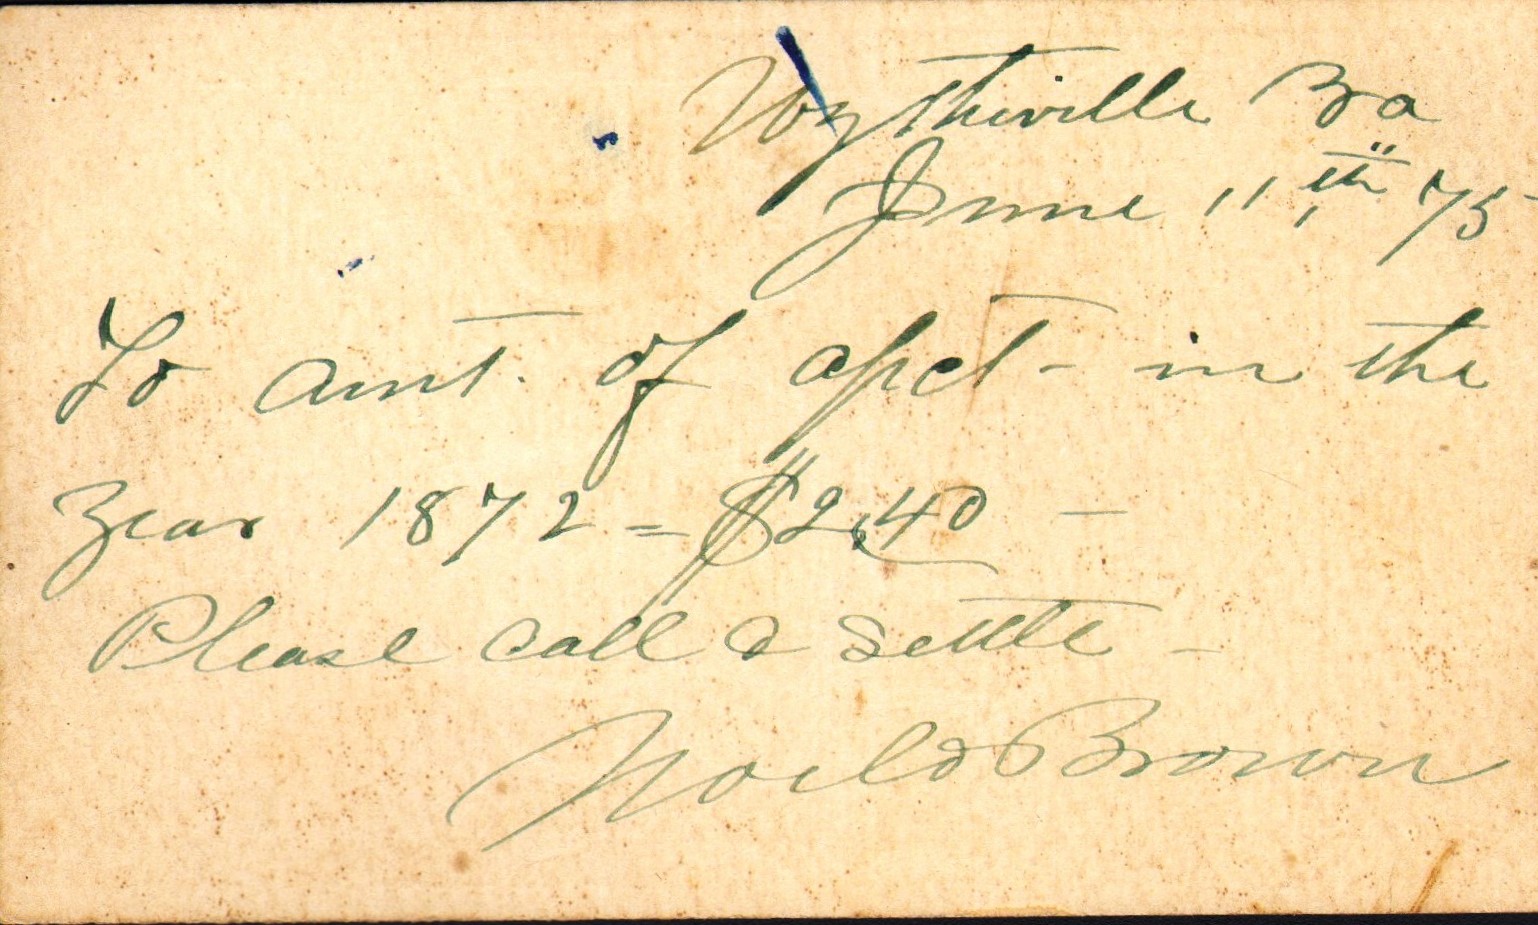 Wytheville Va
June 11th 75
To amt. of apct - in the
Year 1872 = $2.40 -
Please call & settle -
Brown